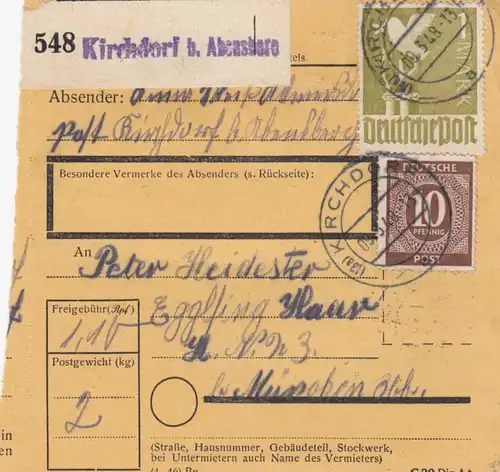 548 Kirchdorf b. Abensberg
Absender: Anna
Post Kirchdorf b. Abensberg
Besondere Vermerke des Absenders (s. Rückseite):
MARK
Deutsche Post
DEUTSCHE
10
PFENNIG
POST
KIRCHDO
(13b)
An
Peter Heidester
Egglfing Haar
H. N. 3.
b. München Obb.
Freigebühr (Rpf)
1,10
Postgewicht (kg)
2
(Straße, Hausnummer, Gebäudeteil, Stockwerk,
bei Untermietern auch Name des Vermieters)
in
en